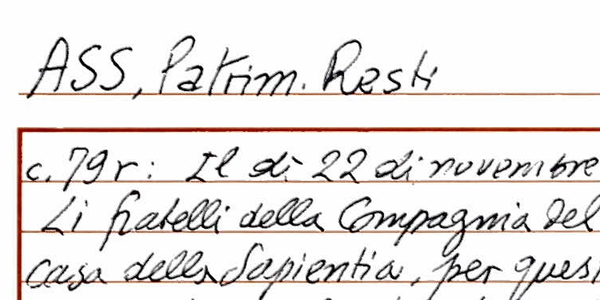 ASS, Patrim. Resti
c. 79 r: Il dì 22 di novembre
Li fratelli della Compagnia del
casa della Sapientia, per ques